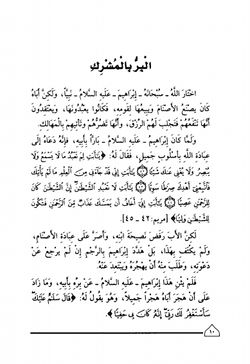 البر بالمشرك
اختار الله - سبحانه - إبراهيم - عليه السلام - نبيًّا، ولكن أباه
كان يصنع الأصنام ويبيعها لقومه، فكانوا يعبدونها، ويعتقدون
أنها تنفعهم فتجلب لهم الرزق، وأنها تضرهم وتأتيهم بالمهالك.
ولما كان إبراهيم - عليه السلام - بارًّا بأبيه، فإنه دعاه إلى
عبادة الله بأسلوب جميل، فقال له: ﴿يَٰٓأَبَتِ لِمَ تَعْبُدُ مَا لَا يَسْمَعُ وَلَا
يُبْصِرُ وَلَا يُغْنِى عَنكَ شَيْـًٔا ۝ يَٰٓأَبَتِ إِنِّى قَدْ جَآءَنِى مِنَ ٱلْعِلْمِ مَا لَمْ يَأْتِكَ
فَٱتَّبِعْنِىٓ أَهْدِكَ صِرَٰطًا سَوِيًّا ۝ يَٰٓأَبَتِ لَا تَعْبُدِ ٱلشَّيْطَٰنَ إِنَّ ٱلشَّيْطَٰنَ كَانَ
لِلرَّحْمَٰنِ عَصِيًّا ۝ يَٰٓأَبَتِ إِنِّىٓ أَخَافُ أَن يَمَسَّكَ عَذَابٌ مِّنَ ٱلرَّحْمَٰنِ فَتَكُونَ
لِلشَّيْطَٰنِ وَلِيًّا﴾ [مريم: ٤٢ - ٤٥].
لكن الأب رفض نصيحة ابنه، وأصر على عبادة الأصنام،
ولم يكتف بهذا، بل هدد إبراهيم بالرجم إن لم يرجع عن
دعوته، وطلب منه أن يهجره ويبتعد عنه.
ولم يتخل إبراهيم - عليه السلام - عن بره بأبيه، وما زاد
على أن هجر أباه هجراً جميلاً، وهو يقول له: ﴿قَالَ سَلَٰمٌ عَلَيْكَ
سَأَسْتَغْفِرُ لَكَ رَبِّىٓ إِنَّهُۥ كَانَ بِى حَفِيًّا﴾
١٠